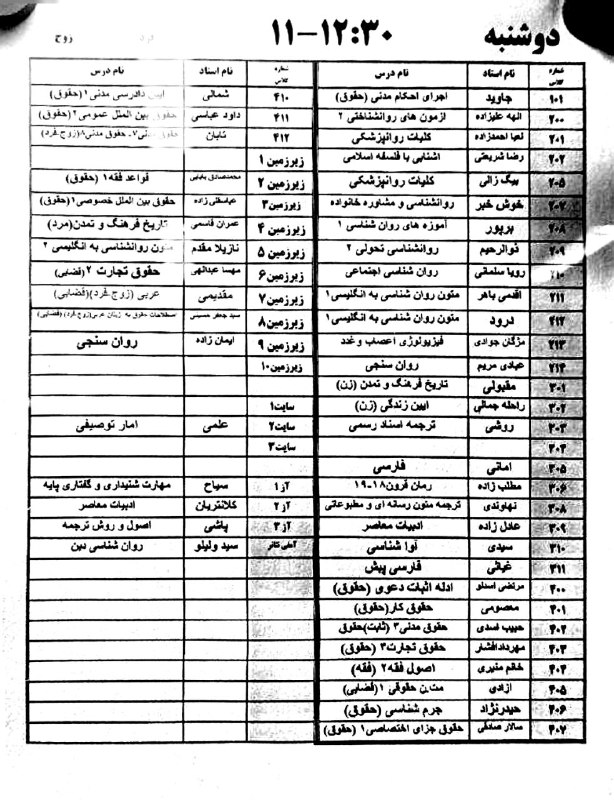 دوشنبه ۱۱-۱۲:۳۰ فرد زوج
شماره کلاس نام استاد نام درس
۱۰۱ جاوید اجرای احکام مدنی (حقوق)
۲۰۰ الهه علیزاده آزمون های روانشناختی ۲
۲۰۱ لعیا احمدزاده کلیات روانپزشکی
۲۰۲ رضا شریعتی اشنایی با فلسفه اسلامی
۲۰۵ بیگ زالی کلیات روانپزشکی
۲۰۷ خوش خبر روانشناسی و مشاوره خانواده
۲۰۸ برپور آموزه های روان شناسی ۱
۲۰۹ ذوالرحیم روانشناسی تحولی ۲
۲۱۰ رویا سلمانی روان شناسی اجتماعی
۲۱۱ اقدسی باهر متون روان شناسی به انگلیسی۱
۲۱۲ درود متون روان شناسی به انگلیسی۱
۲۱۳ مژگان جوادی فیزیولوژی اعصاب وغدد
۲۱۴ عبادی مریم روان سنجی
۳۰۱ مقبولی تاریخ فرهنگ و تمدن (زن)
۳۰۲ راحله جمالی ایین زندگی (زن)
۳۰۳ روشی ترجمه اسناد رسمی
۳۰۴
۳۰۵ امانی فارسی
۳۰۶ مطلب زاده رمان قرون۱۸-۱۹
۳۰۸ نهاوندی ترجمه متون رسانه ای و مطبوعاتی
۳۰۹ عادل زاده ادبیات معاصر
۳۱۰ سیدی آوا شناسی
۳۱۱ غیاثی فارسی پیش
۴۰۰ مرتضی اسدلو ادله اثبات دعوی (حقوق)
۴۰۱ معصومی حقوق کار(حقوق)
۴۰۲ حبیب اسدی حقوق مدنی۳ (ثابت)حقوق
۴۰۳ مهردادافشار حقوق تجارت۳ (حقوق)
۴۰۴ خانم منیری اصول فقه۲ (فقه)
۴۰۵ ازادی متون حقوقی ۱(قضایی)
۴۰۶ حیدرنژاد جرم شناسی (حقوق)
۴۰۷ سالار صادقی حقوق جزای اختصاصی۱ (حقوق)
شماره کلاس نام استاد نام درس
۴۱۰ شمالی ایین دادرسی مدنی۱ (حقوق)
۴۱۱ داود عباسی حقوق بین الملل عمومی۲(حقوق)
۴۱۲ تابان حقوق مدنی۷-حقوق مدنی۸(زوج.فرد)
زیرزمین ۱
زیرزمین ۲ محمدصادق بابایی قواعد فقه۱ (حقوق)
زیرزمین۳ عباسقلی زاده حقوق بین الملل خصوصی۱(حقوق)
زیرزمین ۴ عمران قاسمی تاریخ فرهنگ و تمدن(مرد)
زیرزمین ۵ نازیلا مقدم متون روانشناسی به انگلیسی ۲
زیرزمین۶ مهسا عبدالهی حقوق تجارت ۲(قضایی)
زیرزمین۷ مقدیمی عربی (زوج.فرد)(قضایی)
زیرزمین۸ سید جعفر حسینی اصطلاحات حقوق به زبان عربی(زوج.فرد)(قضایی)
زیرزمین ۹ ایمان زاده روان سنجی
زیرزمین۱۰
سایت۱
سایت۲ علمی امار توصیفی
سایت۳
آز۱ سیاح مهارت شنیداری و گفتاری پایه
آز۲ کلانتریان ادبیات معاصر
آز۳ پاشی اصول و روش ترجمه
آمفی تئاتر سید ولیلو روان شناسی دین